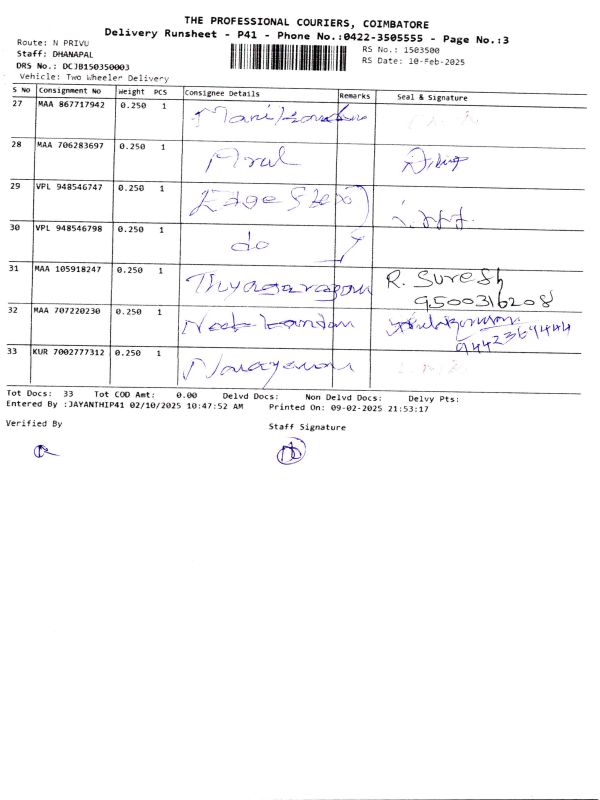 THE PROFESSIONAL COURIERS, COIMBATORE
Delivery Runsheet - P41 - Phone No.:0422-3505555 - Page No.:3
Route: N PRIVU
RS No.: 1503500
Staff: DHANAPAL
RS Date: 10-Feb-2025
DRS No.: DCJB150350003
Vehicle: Two Wheeler Delivery
S No Consignment No Weight PCS Consignee Details Remarks Seal & Signature
27 MAA 867717942 0.250 1 Manikandan
28 MAA 706283697 0.250 1 Arul
29 VPL 948546747 0.250 1 Edge Step
30 VPL 948546798 0.250 1 do
31 MAA 105918247 0.250 1 Thyagarajan R. Suresh
9500316208
32 MAA 707220230 0.250 1 Neelakandan
9442369444
33 KUR 7002777312 0.250 1 Narayanan
Tot Docs: 33 Tot COD Amt: 0.00 Delvd Docs: Non Delvd Docs: Delvy Pts:
Entered By :JAYANTHIP41 02/10/2025 10:47:52 AM Printed On: 09-02-2025 21:53:17
Verified By
Staff Signature